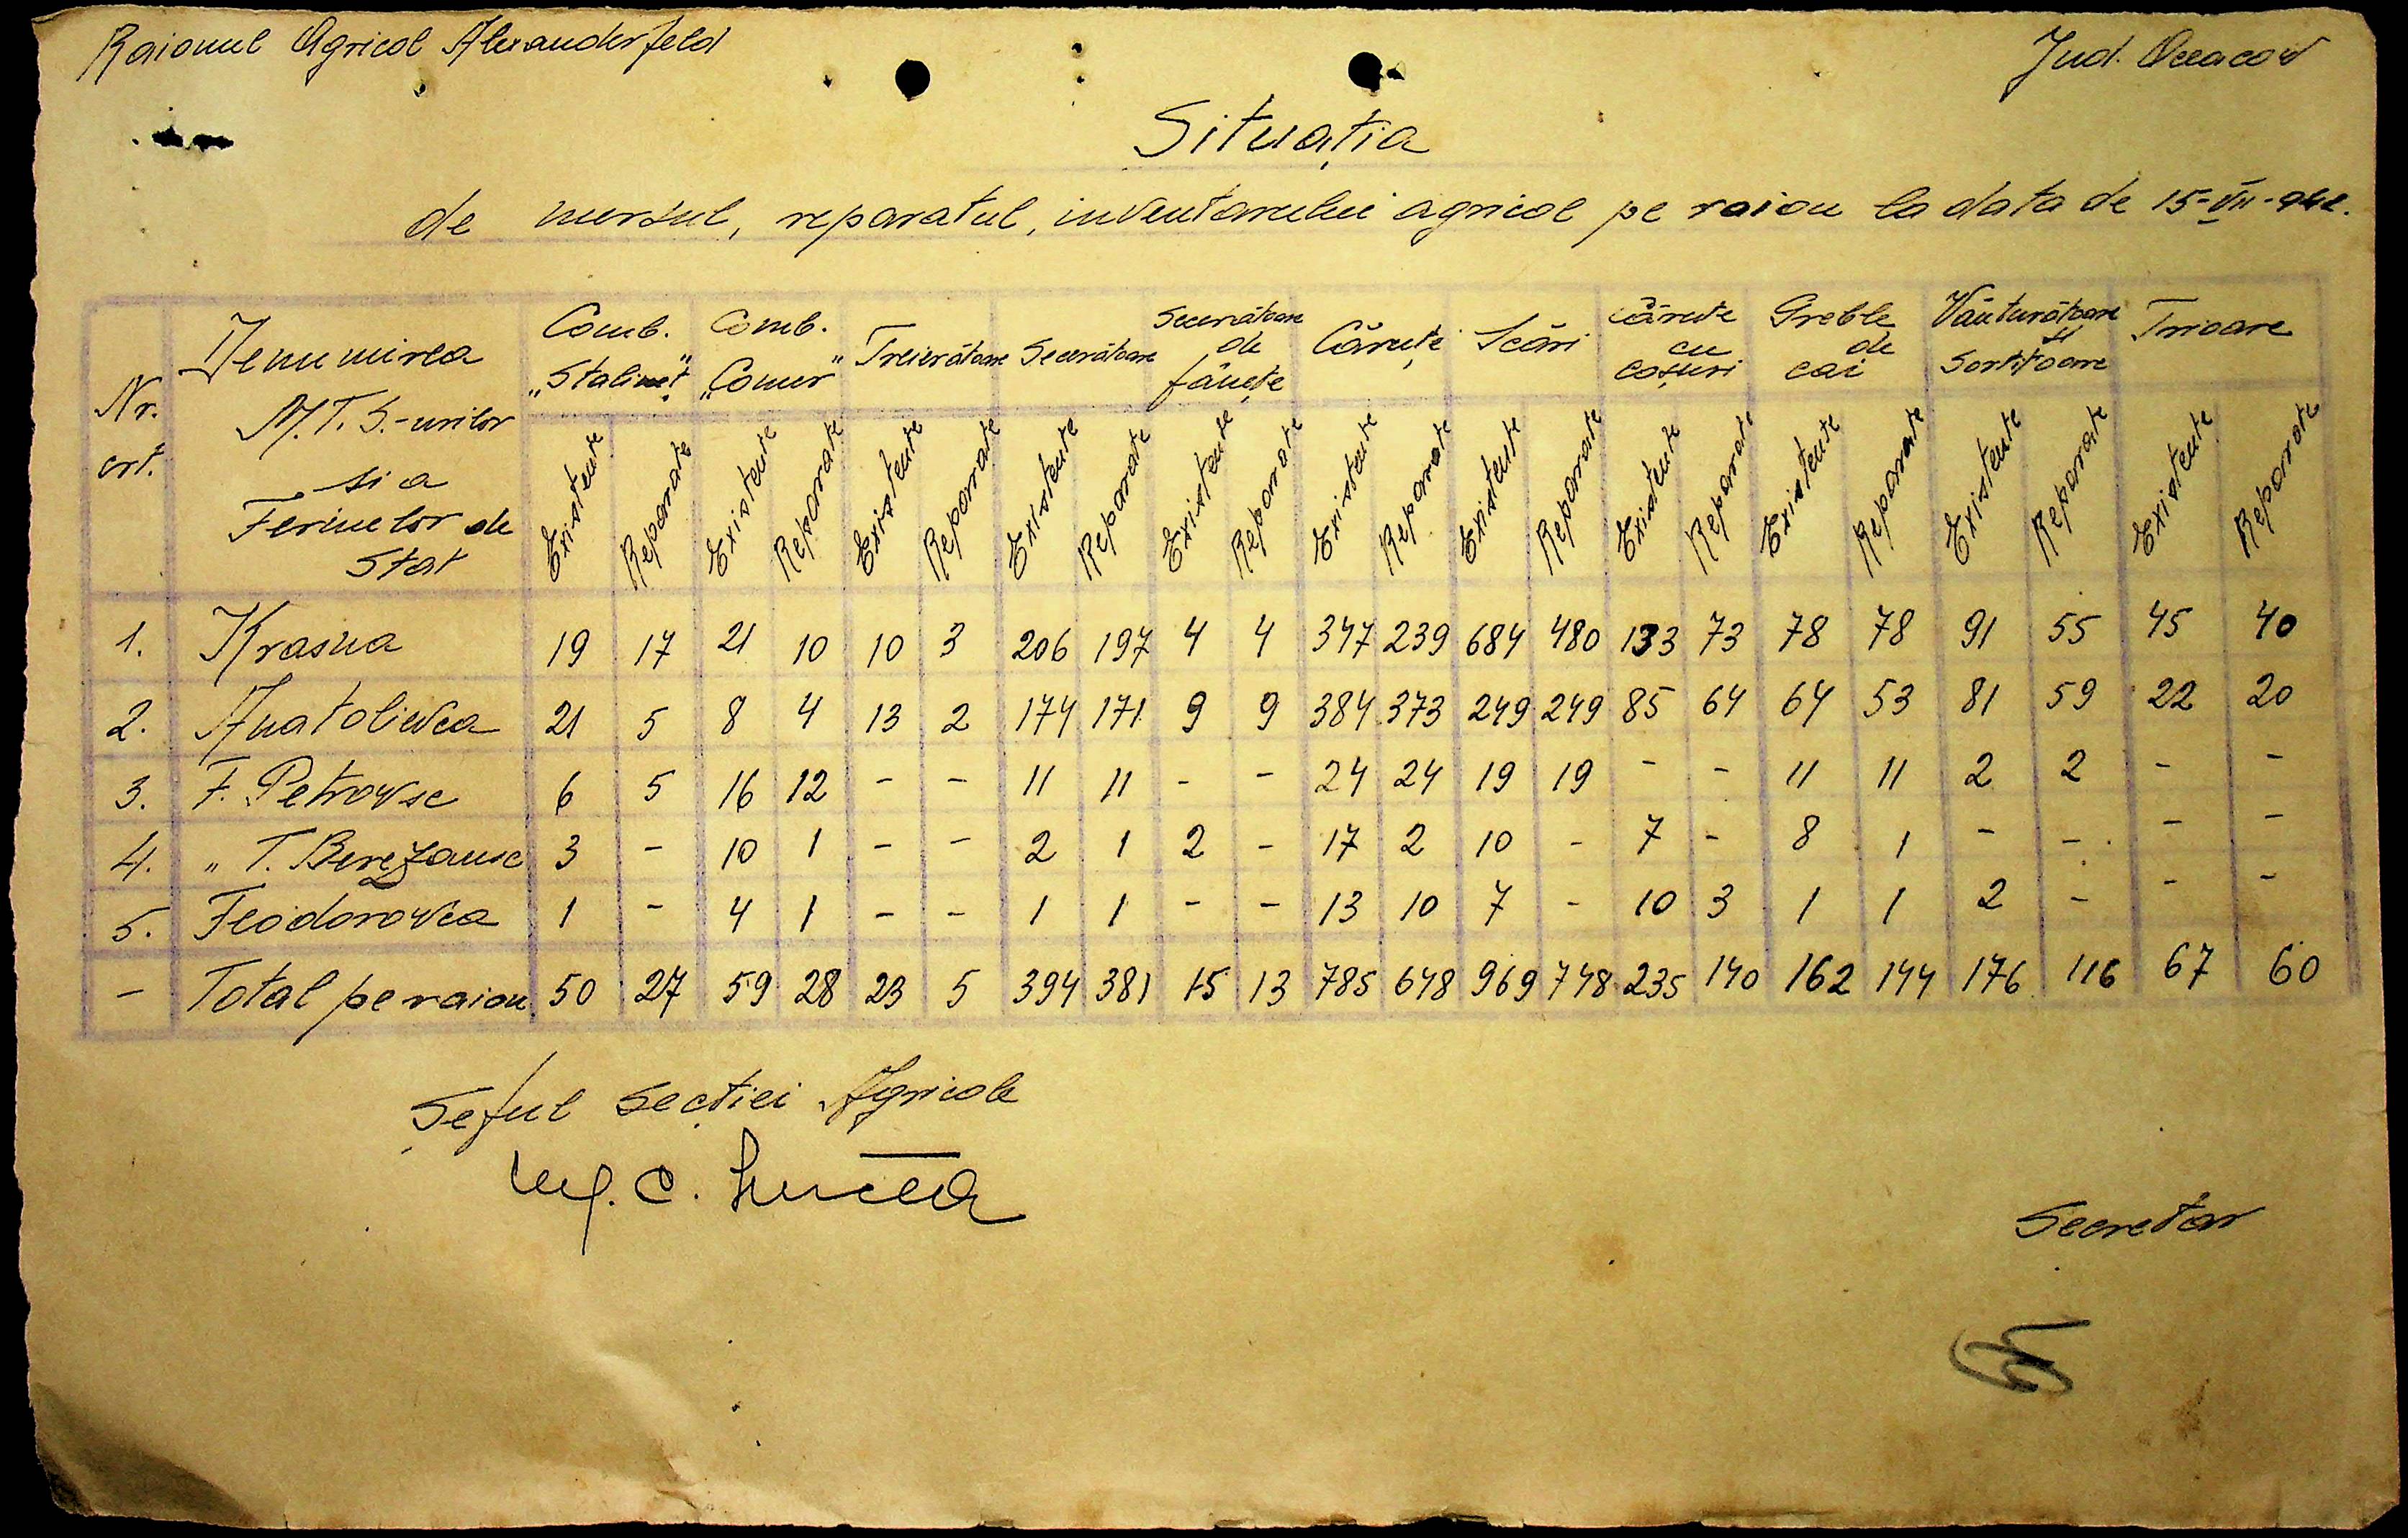 Raionul Agricol Alexanderfeld
Jud. Oceacov
Situația
de mersul, reparatul, inventarului agricol pe raion la data de 15-VII-942.
Nr. crt. | Denumirea M.T.S.-urilor si a Fermelor de Stat | Comb. „Stalineț” | Comb. „Comer” | Treierătoare | Secerătoare | Secerătoare de fânețe | Căruțe | Scări | Cărute cu coșuri | Greble de cai | Vânturătoare si Sortitoare | Trioare
Existente | Reparate | Existente | Reparate | Existente | Reparate | Existente | Reparate | Existente | Reparate | Existente | Reparate | Existente | Reparate | Existente | Reparate | Existente | Reparate | Existente | Reparate | Existente | Reparate
1. | Krasna | 19 | 17 | 21 | 10 | 10 | 3 | 206 | 197 | 4 | 4 | 347 | 239 | 684 | 480 | 133 | 73 | 78 | 78 | 91 | 55 | 45 | 40
2. | Anatolievca | 21 | 5 | 8 | 4 | 13 | 2 | 174 | 171 | 9 | 9 | 384 | 373 | 249 | 249 | 85 | 64 | 64 | 53 | 81 | 59 | 22 | 20
3. | F. Petrovsc | 6 | 5 | 16 | 12 | - | - | 11 | 11 | - | - | 24 | 24 | 19 | 19 | - | - | 11 | 11 | 2 | 2 | - | -
4. | „ T. Berezansc | 3 | - | 10 | 1 | - | - | 2 | 1 | 2 | - | 17 | 2 | 10 | - | 7 | - | 8 | 1 | - | - | - | -
5. | Feodorovca | 1 | - | 4 | 1 | - | - | 1 | 1 | - | - | 13 | 10 | 7 | - | 10 | 3 | 1 | 1 | 2 | - | - | -
- | Total pe raion | 50 | 27 | 59 | 28 | 23 | 5 | 394 | 381 | 15 | 13 | 785 | 648 | 969 | 748 | 235 | 140 | 162 | 144 | 176 | 116 | 67 | 60
Șeful secției Agricole
Ing. C.
Secretar